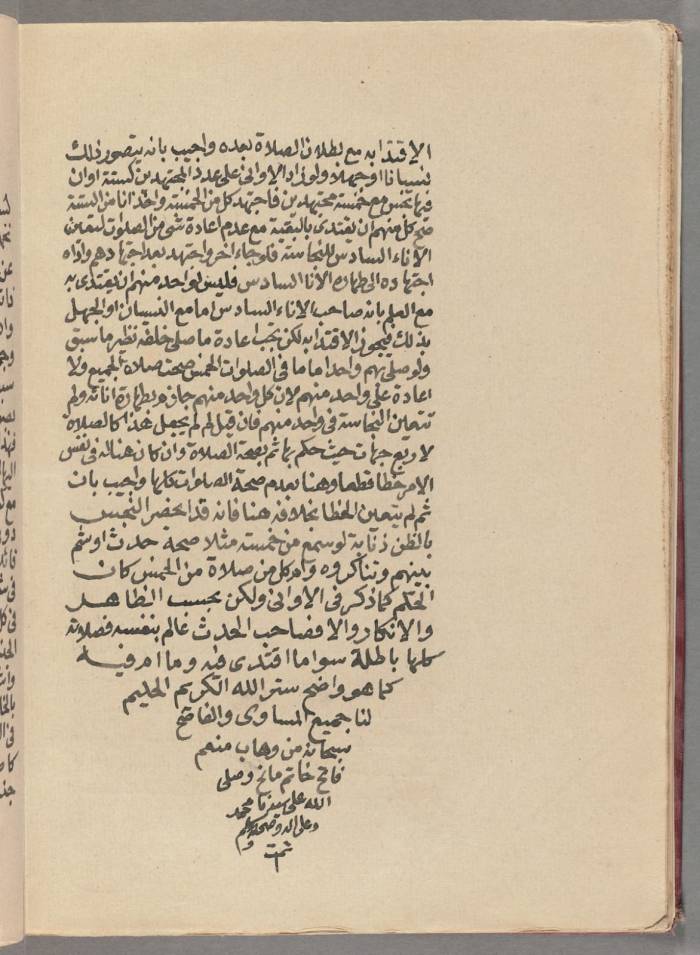 الاقتدا به مع بطلان الصلاة بعده واجيب بانه يتصور ذلك
نسيانا او جهلا ولو زاد الاوانى على عدد المجتهدين كستة اوان
فيها نجس مع خمسة مجتهدين فاجتهد كل من الخمسة واخذ انا من الستة
صح كل منهم ان يقتدى بالبقية مع عدم اعادة شى من الصلوات لتعين
الاناء السادس للنجاسة فلو جاء اخر واجتهد بعد اجتهادهم واداه
اجتهاده الى طهارة الانا السادس فليس لواحد منهم ان يقتدى به
مع العلم بانه صاحب الاناء السادس اما مع النسيان او الجهل
بذلك فيجوز الاقتدا به لكن يجب اعادة ما صلى خلفه نظير ما سبق
ولو صلى بهم واحد اماما فى الصلوات الخمس صحت صلاة الجميع ولا
اعادة على واحد منهم لان كل واحد منهم جازم بطهارة انائه ولم
تتعين النجاسة فى واحد منهم فان قيل لم لم يجعل هذا كالصلاة
لاربع جهات حيث حكم بها ثم بصحة الصلاة وان كان هناك فى نفس
الامر خطا قطعا وهنا بعدم صحة الصلوات كلها واجيب بان
ثم لم يتعين الخطا بخلافه هنا فانه قد انحصر النجس
بالظن ذنابة لو سمع من خمسة مثلا صحه حدث او شم
بينهم وتناكروه وام كل من صلاة من الخمس كان
الحكم كما ذكر فى الاوانى ولكن بحسب الظاهر
والانكار والا فصاحب الحدث عالم بنفسه فصلاته
كلها باطلة سوا ما اقتدى فيه وما ام فيه
كما هو واضح ستر الله الكريم الحليم
لنا جميع المساوى والفاضح
سبحانه من وهاب منعم
فاتح خاتم مانح وصلى
الله على سيدنا محمد
وعلى اله وصحبه وسلم
تمت